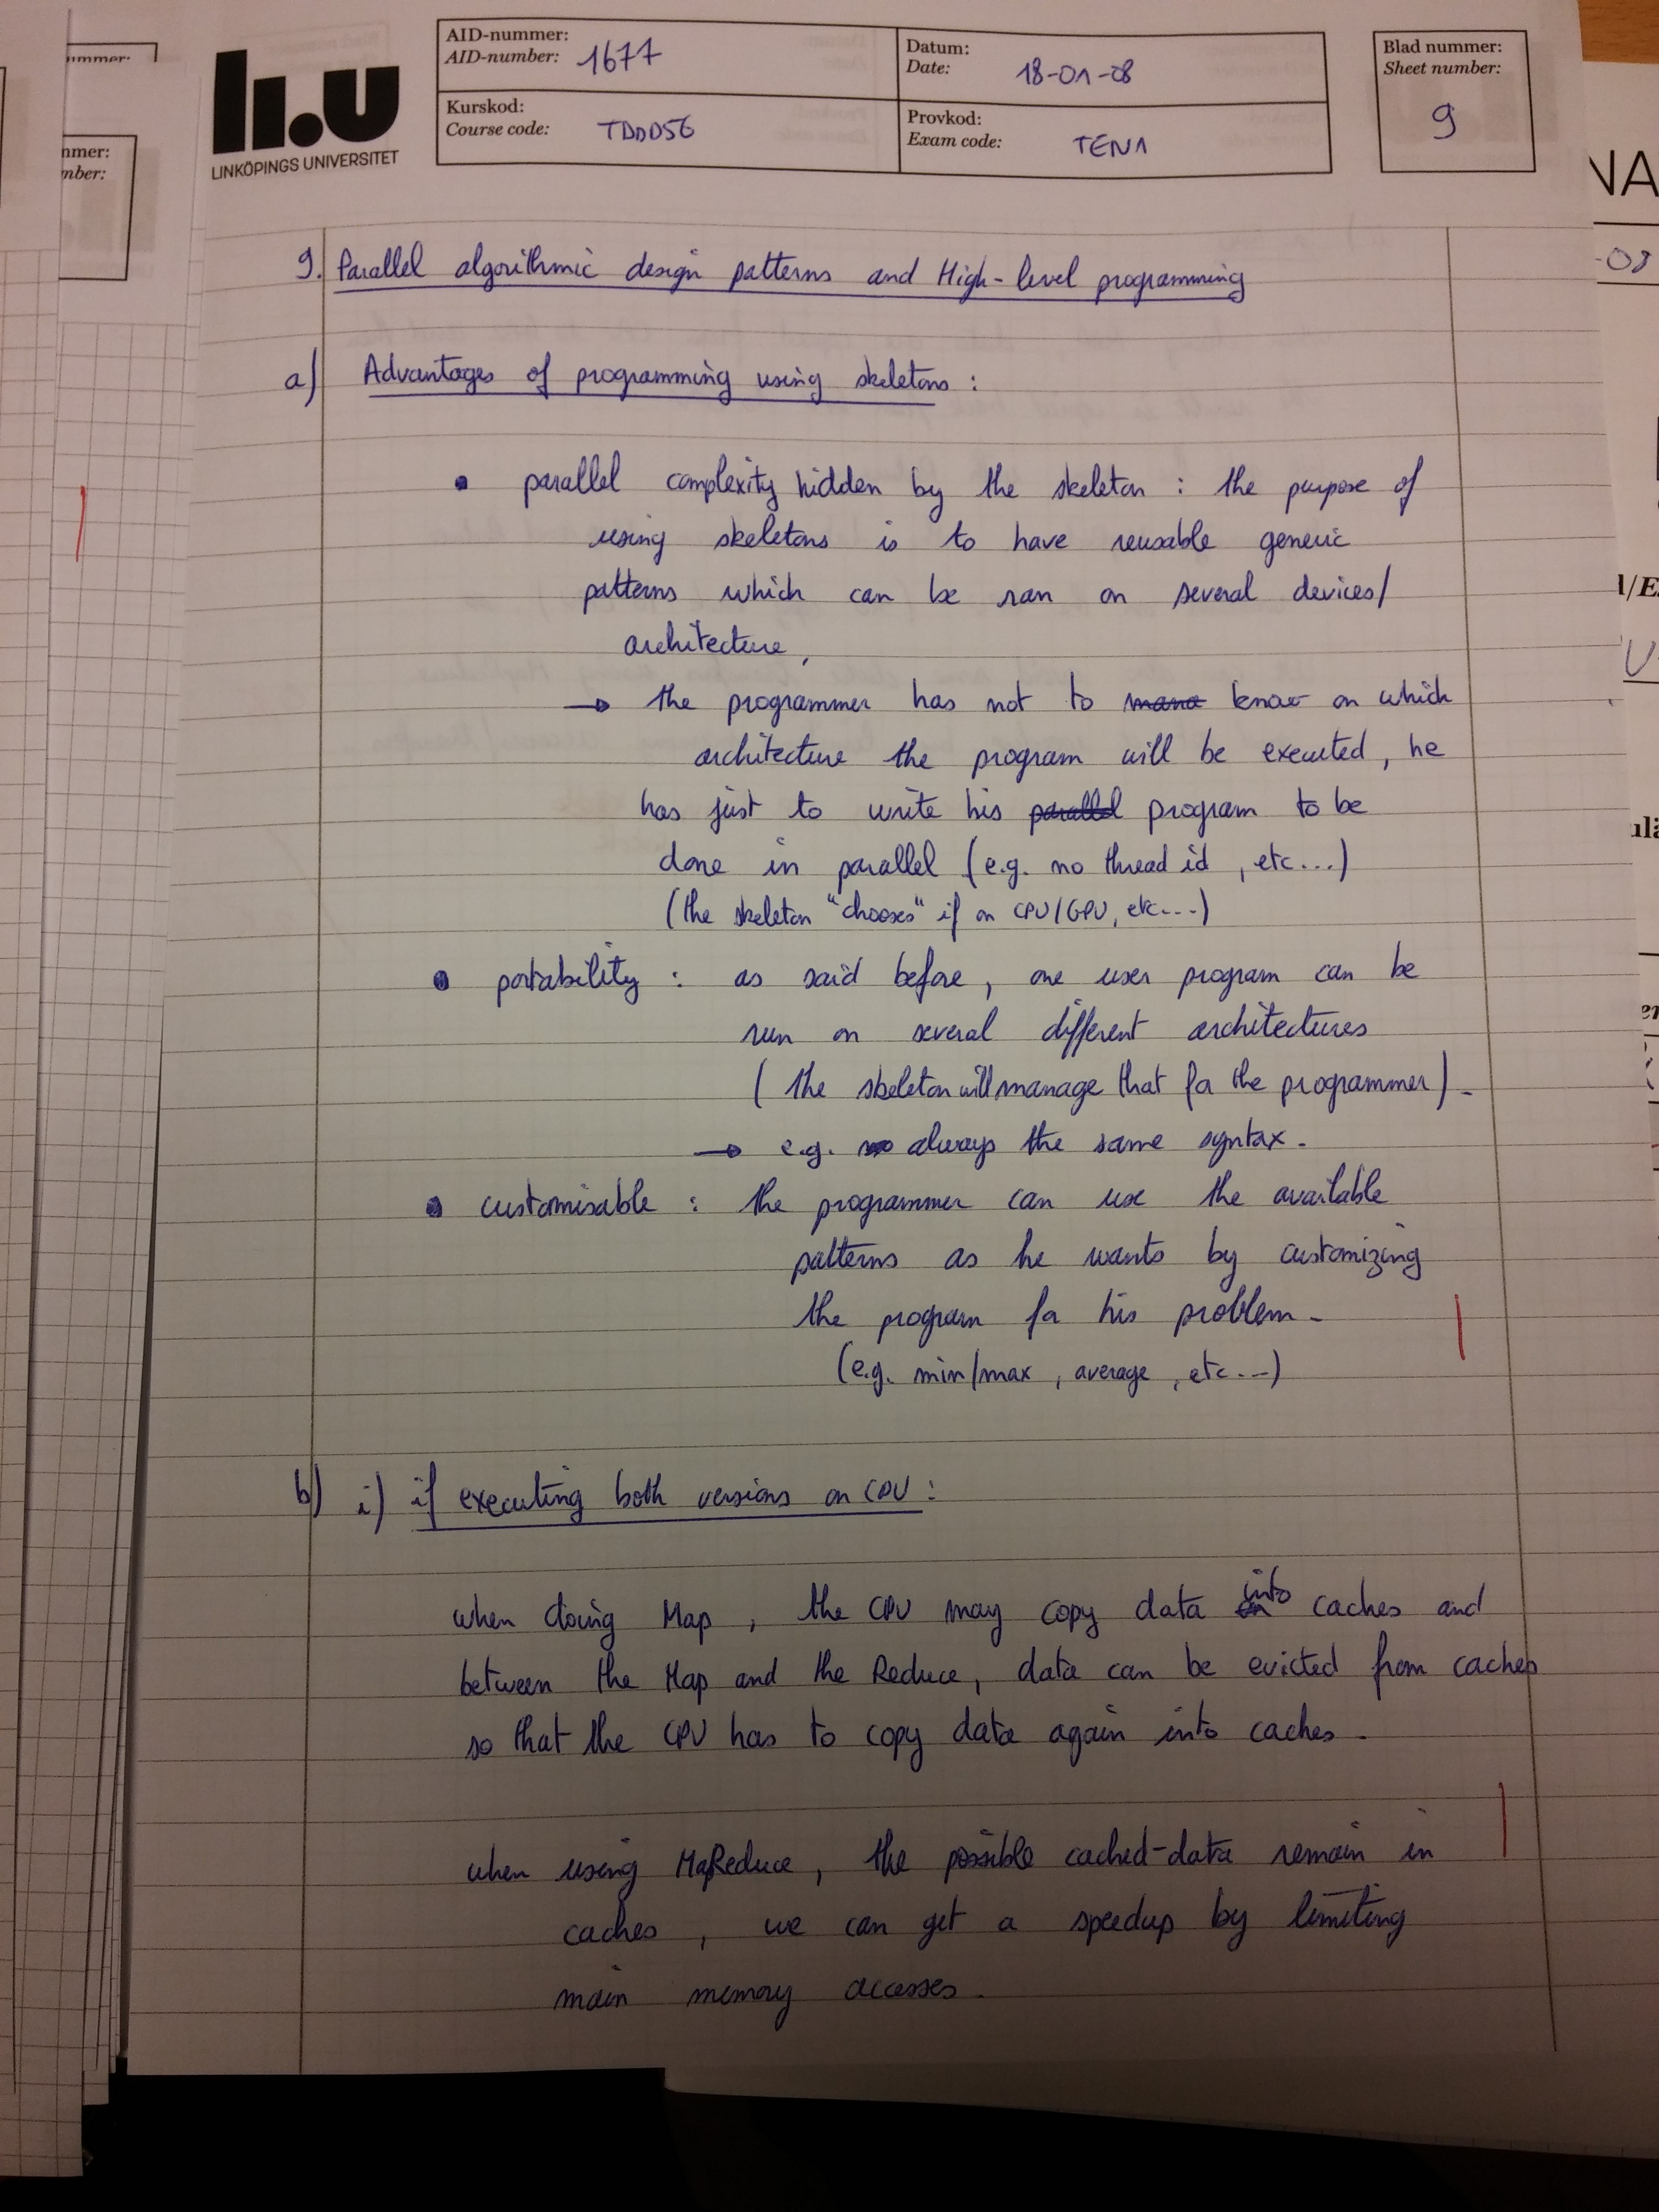 AID-nummer:
AID-number: 1677
Datum:
Date: 18-01-08
Blad nummer:
Sheet number:
9
Kurskod:
Course code: TDDD56
Provkod:
Exam code: TEN1
li.u
LINKÖPINGS UNIVERSITET
ummer:
nmer:
mber:
NA
-08
l/E
9. Parallel algorithmic design patterns and High-level programming
a) Advantages of programming using skeletons :
• parallel complexity hidden by the skeleton : the purpose of
using skeletons is to have reusable generic
patterns which can be ran on several devices/
architecture,
→ the programmer has not to mana know on which
architecture the program will be executed, he
has just to write his parallel program to be
done in parallel (e.g. no thread id, etc...)
(the skeleton "chooses" if on CPU/GPU, etc...)
• portability : as said before, one user program can be
run on several different architectures
( the skeleton will manage that for the programmer).
→ e.g. always the same syntax.
• customisable : the programmer can use the available
patterns as he wants by customizing
the program for his problem.
(e.g. min/max, average, etc...)
b) i) if executing both versions on CPU :
when doing Map, the CPU may copy data into caches and
between the Map and the Reduce, data can be evicted from caches
so that the CPU has to copy data again into caches.
when using MapReduce, the possible cached-data remain in
caches, we can get a speedup by limiting
main memory accesses.